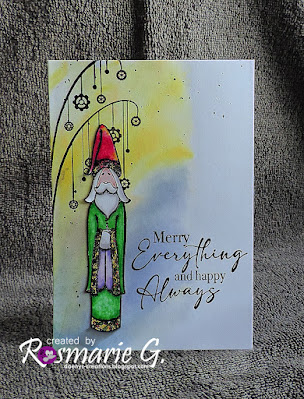 Merry
Everything
and happy
Always
created by
Rosmarie G.